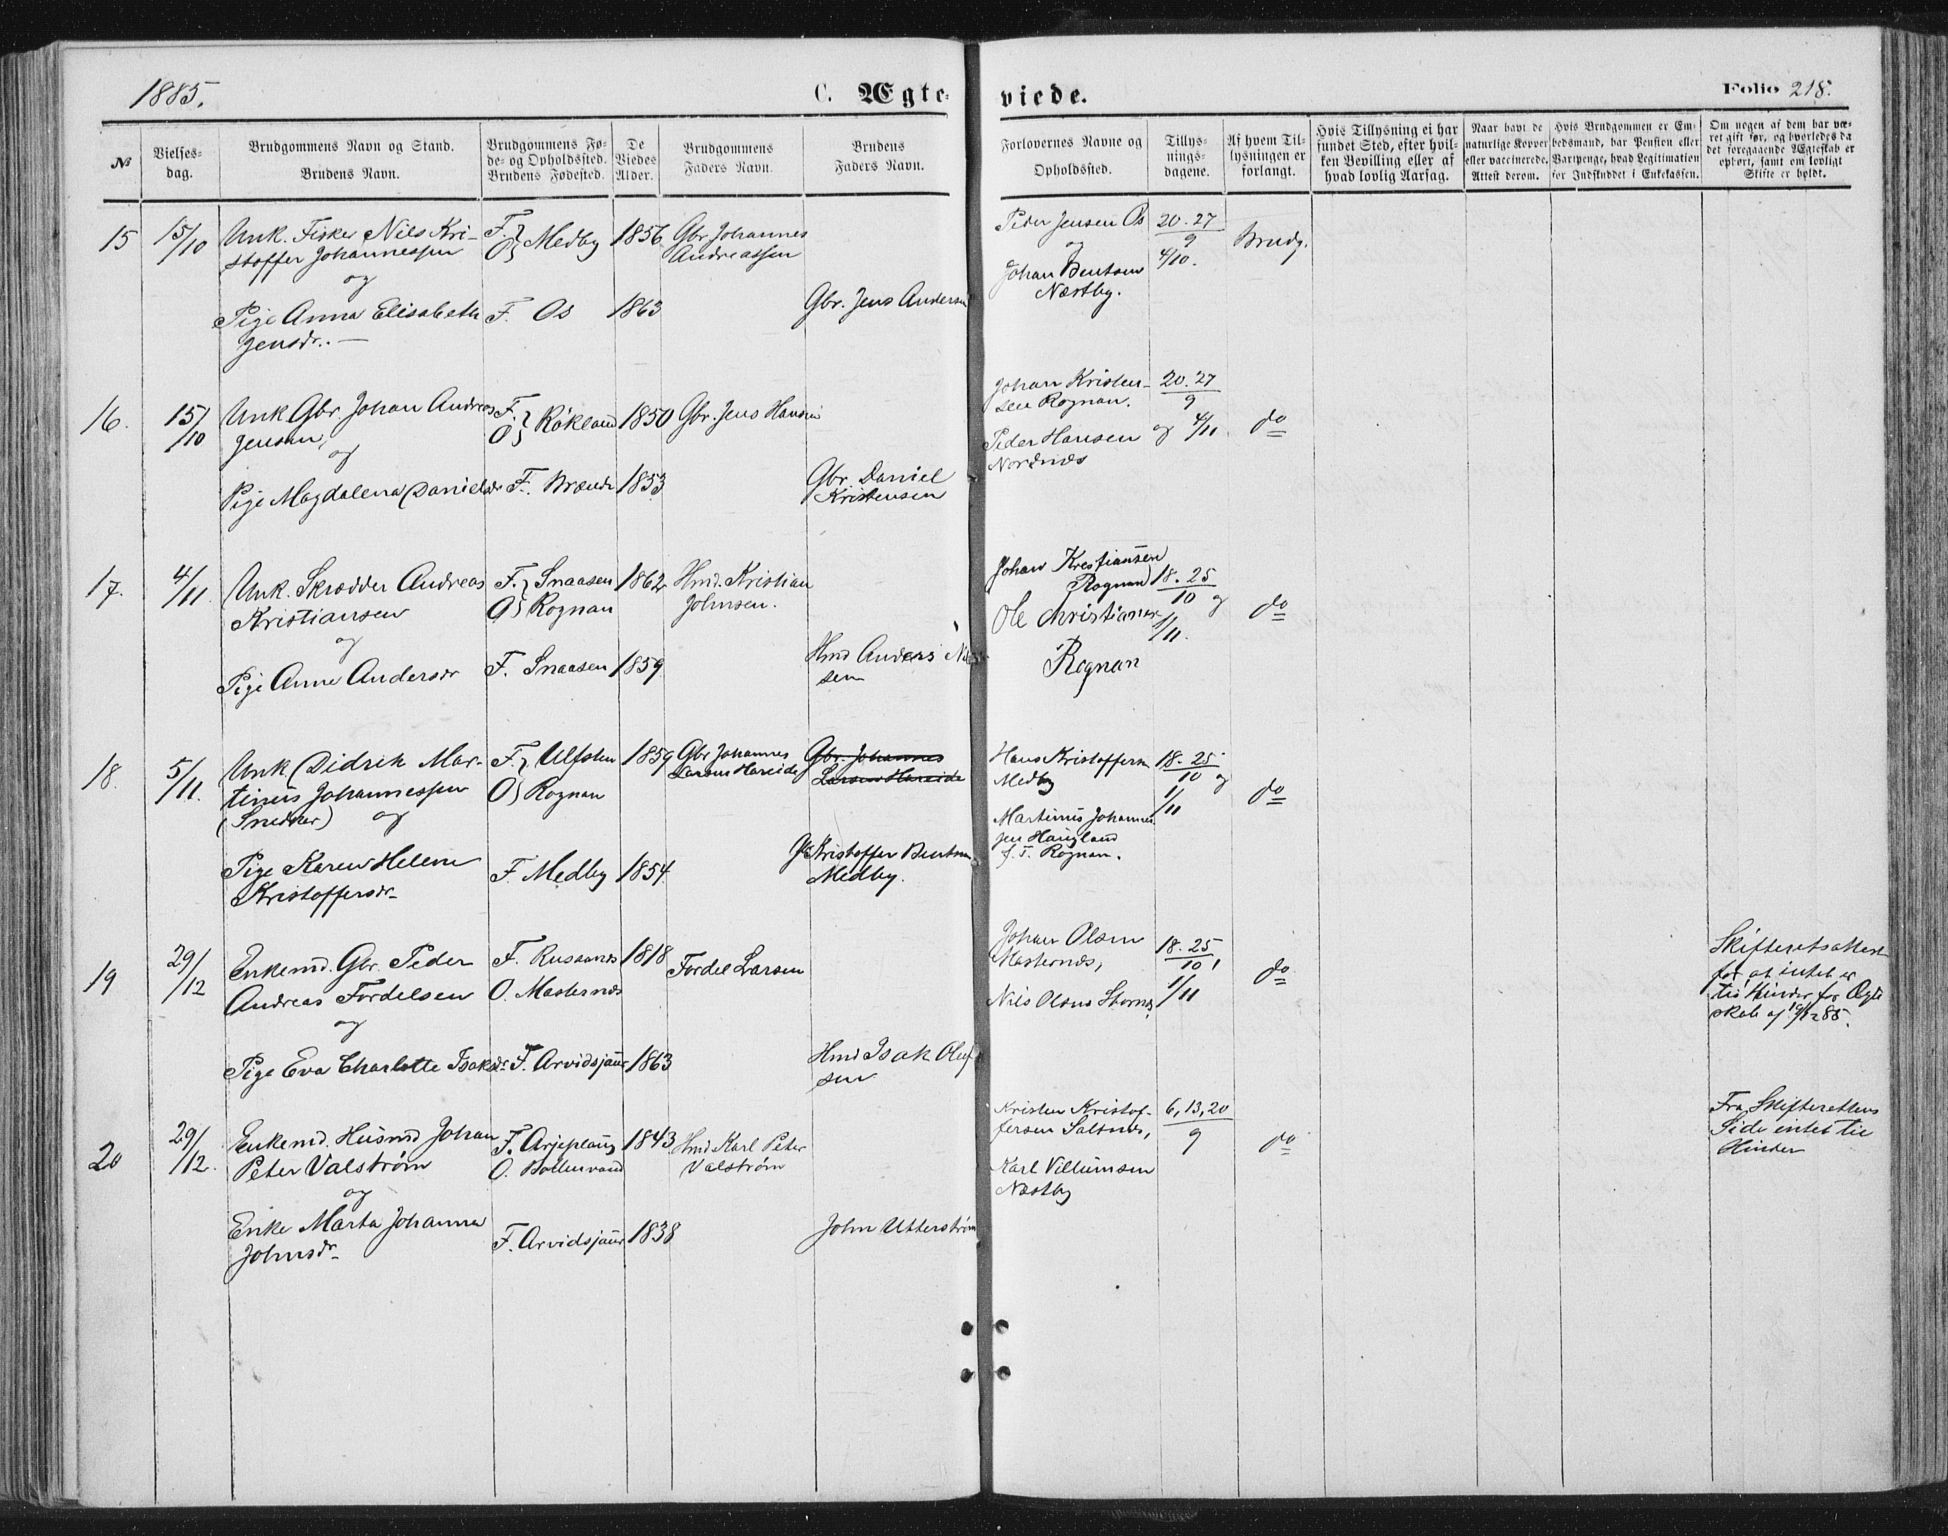 1885.
C. Ægte-
viede.
Folio 218.
№
Vielses-
dag.
Brudgommens Navn og Stand.
Brudens Navn.
Brudgommens Fø-
de- og Opholdssted.
Brudens Fødested.
De
Viedes
Alder.
Brudgommens
Faders Navn.
Brudens
Faders Navn.
Forlovernes Navne og
Opholdssted.
Tillys-
nings-
dagene.
Af hvem Til-
lysningen er
forlangt.
Hvis Tillysning ei har
fundet Sted, efter hvil-
ken Bevilling eller af
hvad lovlig Aarsag.
Naar havt de
naturlige Kopper
eller vaccinerede.
Attest derom.
Hvis Brudgommen er Em-
bedsmand, har Pension eller
Vartpenge, hvad Legitimation
for Indskuddet i Enkekassen.
Om nogen af dem har væ-
ret gift før, og hvorledes da
det foregaaende Ægteskab er
ophørt, samt om lovligt
Skifte er holdt.
15
15/10
Unk. Fisker Nils Kri-
stoffer Johannessen
og
Pige Anna Elisabeth
Jensdr. —
F. } Medby
O }
F. Os
1856
1863
Gbr. Johannes
Andreassen
Gbr. Jens Andersen
Peder Jensen Os
og
Johan Bentsen
Næstby.
20. 27
9
4/10.
Brudg.
16.
15/10
Unk Gbr. Johan Andreas
Jensen,
og
Pige Magdalena Danielsdr
F. } Røkland
O }
F. Brænde
1850
1853
Gbr. Jens Hansen
Gbr. Daniel
Kristensen
Johan Kristen-
sen Rognan.
Peder Hansen
Nordnæs
20. 27
9
og 4/11.
do
17.
4/11.
Unk. Skrædder Andreas
Kristiansen
og
Pige Anne Andersdr
F. } Snaasen
O } Rognan
F. Snaasen
1862
1859
Hmd. Kristian
Johnsen.
Hmd Anders Nil
sen
Johan Krestiansen
Rognan
Ole Christiansen
Rognan
18. 25
10 og
1/11.
do
18.
5/11.
Unk Didrik Mar-
tinus Johannessen
(Snedker) og
Pige Karen Helene
Kristoffersdr.
F. } Ulfsten
O } Rognan
F. Medby
1859
1854
Gbr Johannes
Larsen Hareide
Gbr. Johannes
Larsen Hareide
Gbr Kristoffer Bentsen
Medby.
Hans Kristoffersen
Medby
Martinus Johannes
sen Haugland
f. T. Rognan.
18. 25
10 og
1/11
do
19
29/12
Enkemd. Gbr. Peder
Andreas Fordelsen
og
Pige Eva Charlotte Isaksdr
F. Russanes
O. Masternæs
F. Arvidsjaur
1818
1863
Fordel Larsen
Hmd Isak Oluf
sen
Johan Olsen
Masternæs,
Nils Olsen Stornes
18. 25
10,
1/11
do
Skifteretsattest
for at intet er
til Hinder for Ægte
skab af 19/12 85.
20
29/12.
Enkemd. Husmd Johan
Peter Valstrøm
og
Enke Marta Johanna
Johnsdr
F. Arjeplaug
O. Bollervand
F. Arvidsjaur
1843
1838
Hmd Karl Peter
Valstrøm
John Utterstrøm
Kristen Kristof-
fersen Saltnes,
Karl Villumsen
Næstby
6, 13, 20
9
do
Fra Skifterettens
Side intet til
Hinder